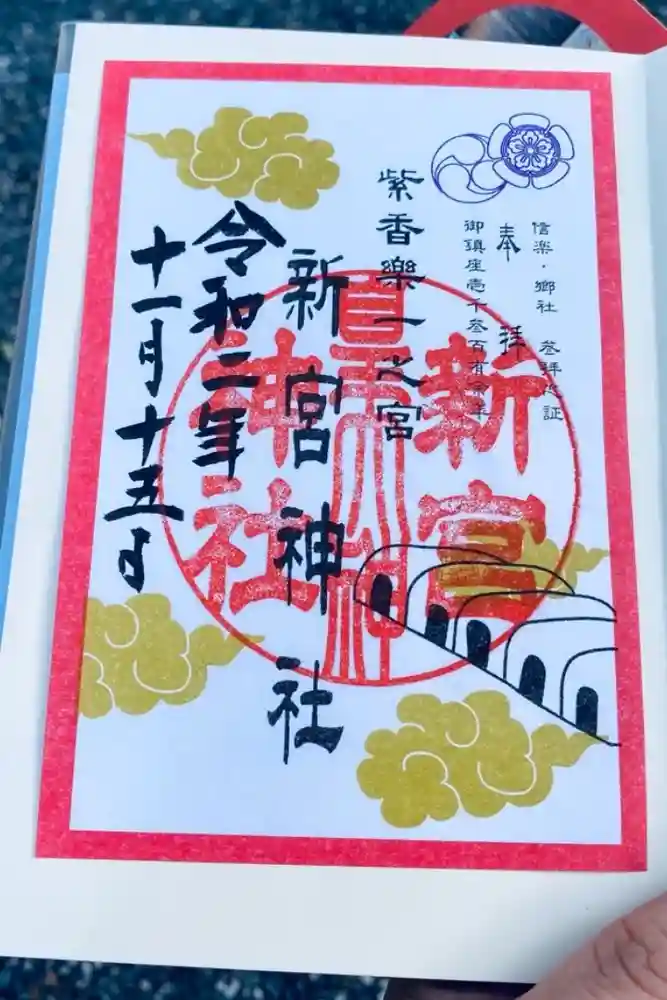 信楽・郷社　参拝之証
奉拝
御鎮座壱千参百有余年
紫香樂一之宮
新宮神社
令和二年
十一月十五日
新宮
神社